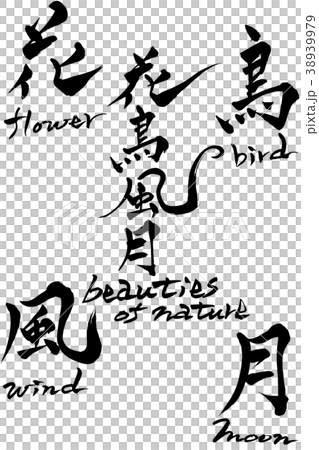 花
flower
花鳥風月
beauties
of nature
鳥
bird
風
wind
月
moon
PIXTA
pixta.jp - 38939979